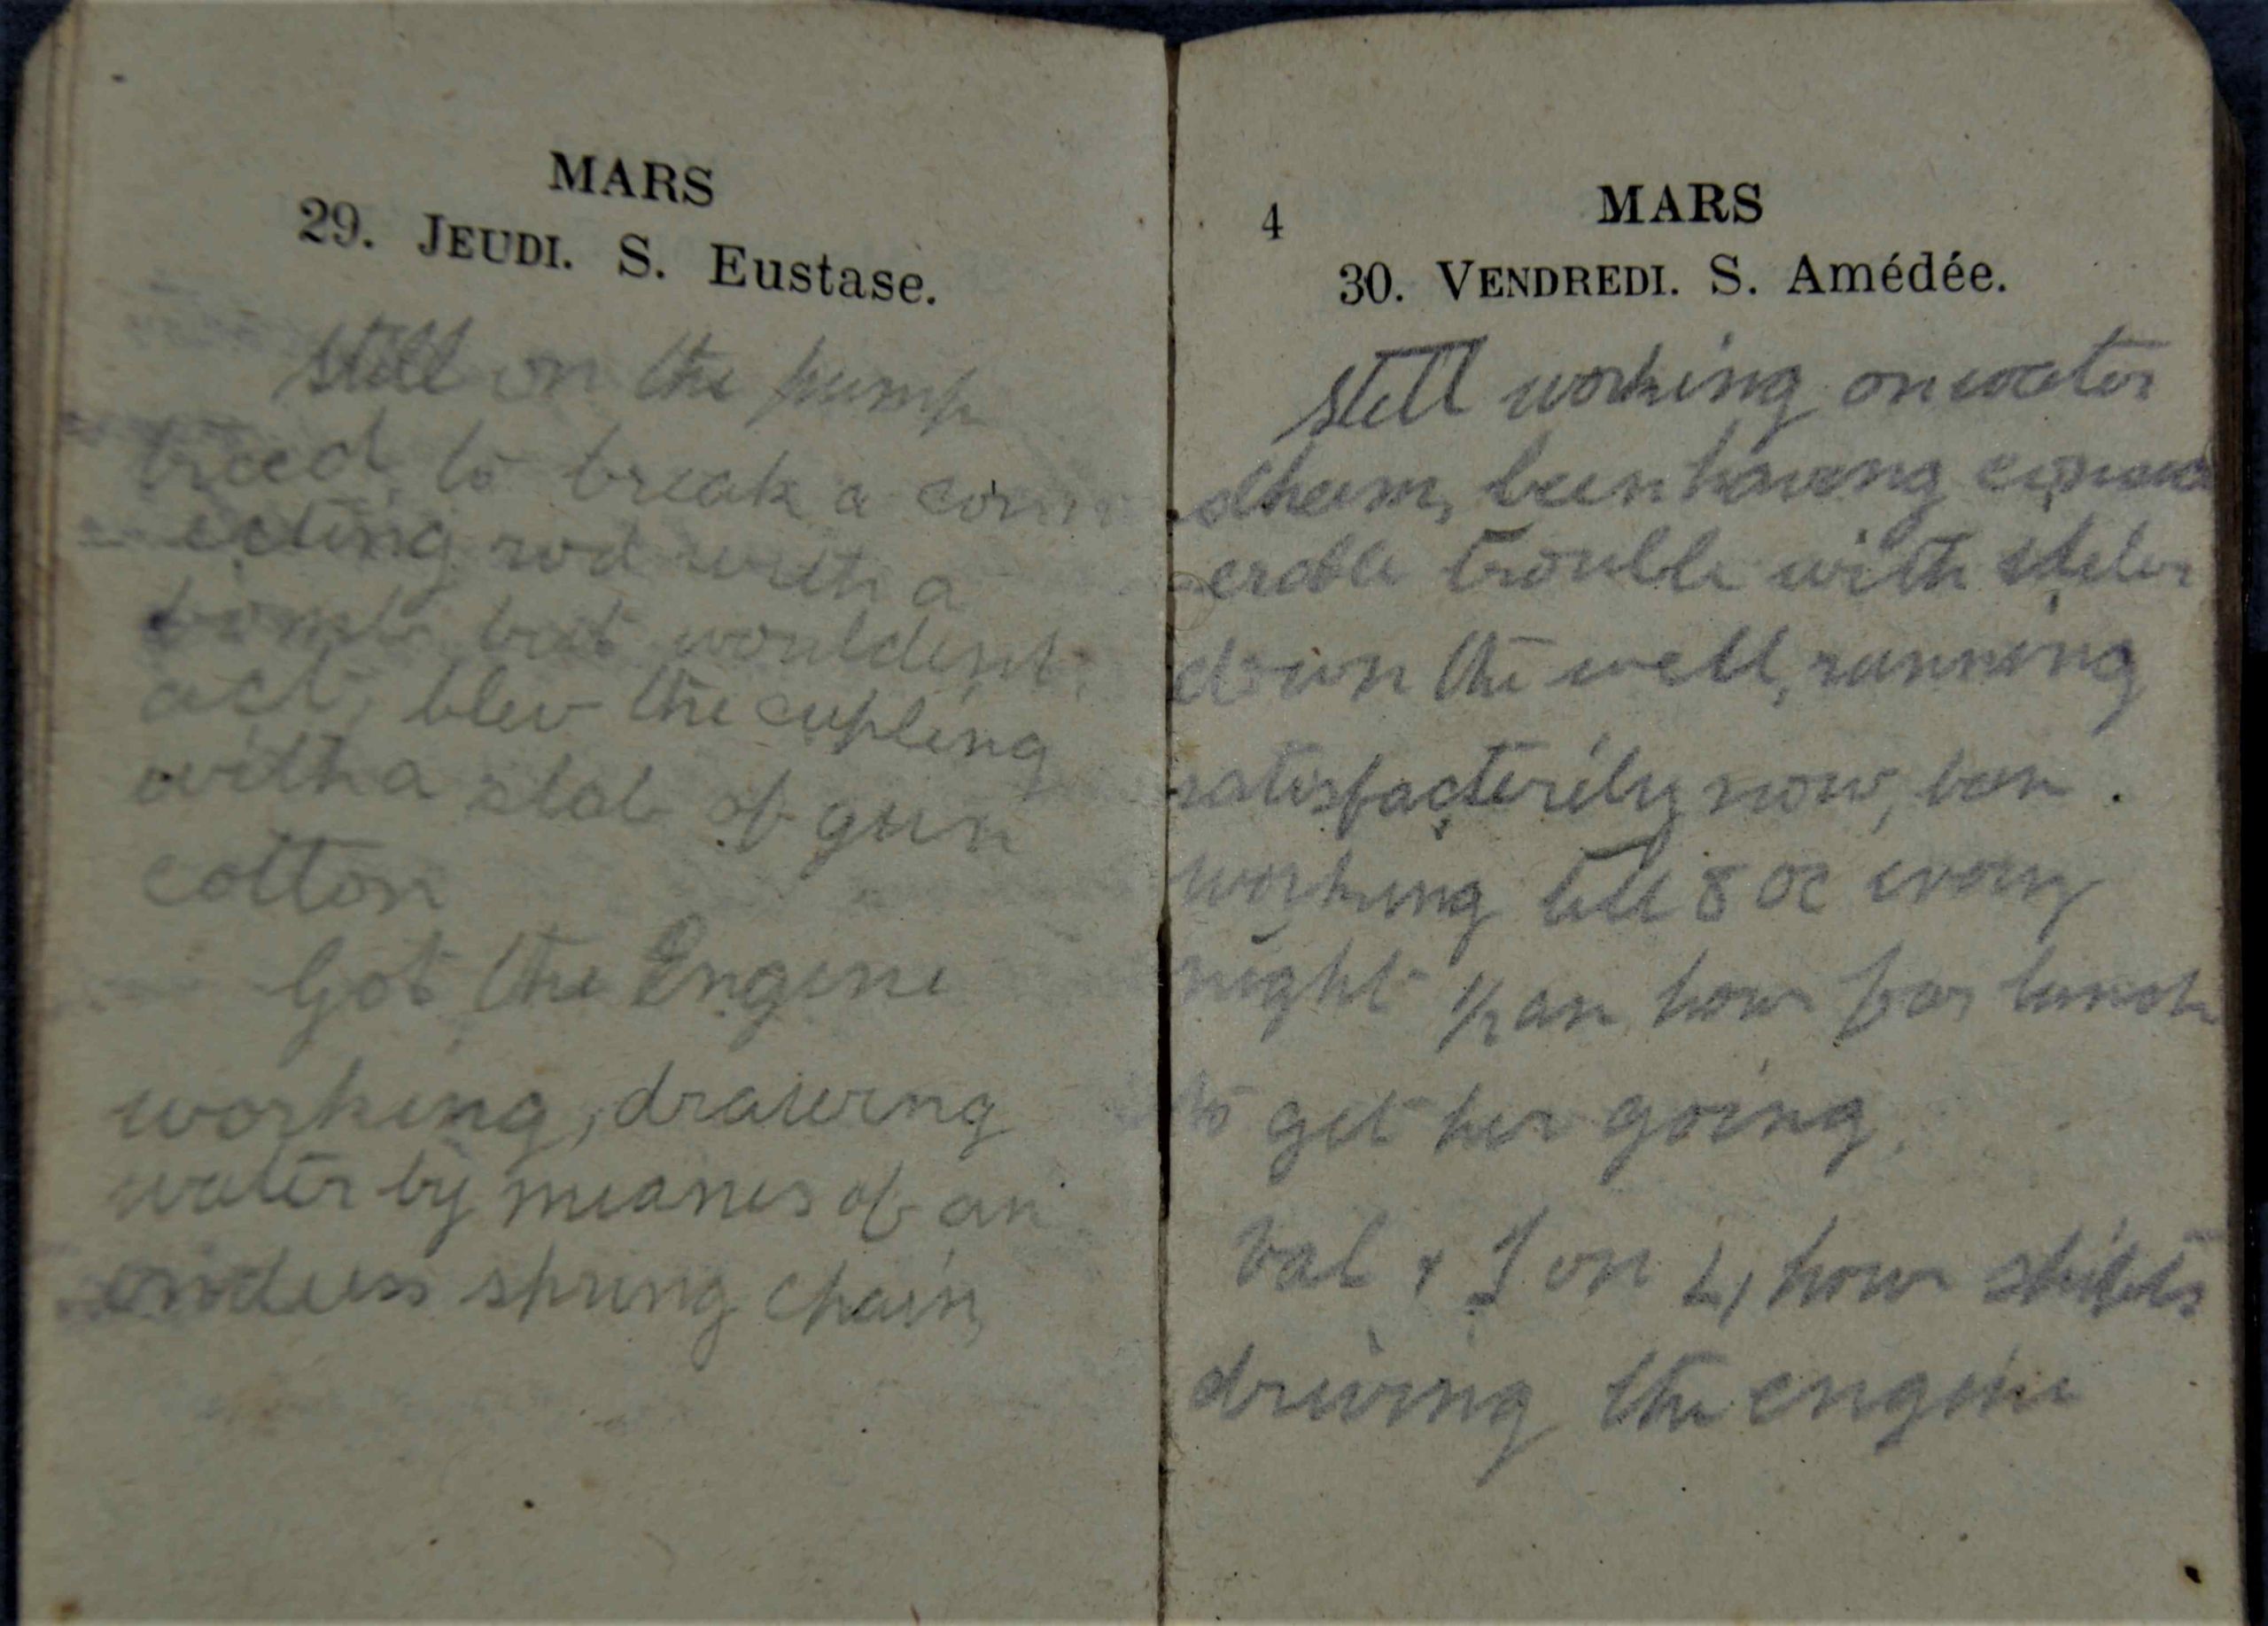 MARS
29. JEUDI. S. Eustase.
Still on the pump
tried to break a conn
ecting rod with a
bomb but wouldent
act, blew the cupling
with a slab of gun
cotton
Got the Engine
working, drawing
water by meanes of an
endless spring chain,
4
MARS
30. VENDREDI. S. Amédée.
Still working on water
been having
erable trouble with
down the well, running
satisfacterily now,
working till 8 oc every
night 1/2 an hour for lunch
to get her going.
Val + I on 4 hour shifts
driving the engine